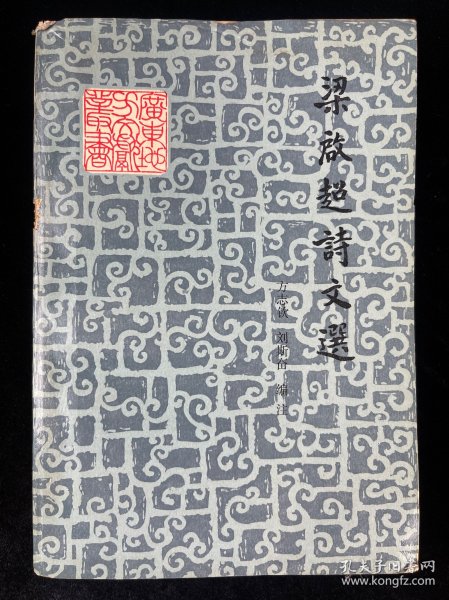 梁啟超詩文選
方志钦 刘斯奋 编注
廣東地
方文獻
叢書
孔夫子旧书网
www.kongfz.com